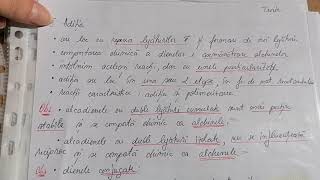 Aditia
• au loc cu ruperea legăturilor π și formarea de noi legături
• comportarea chimică a dienelor ≈ asemănătoare alchenelor
• întâlnim aceleași reacții, dar cu unele particularități
• aditia au loc în una sau 2 etape, în fct de nat. reactantului
• reacții caracteristice: aditia și polimerizarea
Obs: • alcadienele cu duble legături cumulate sunt mai puțin
stabile și se comportă chimic ca alchenele
• alcadienele cu duble legături izolate, nu se influențează
reciproc și se comportă chimic ca alchenele
Obs • dienele conjugate